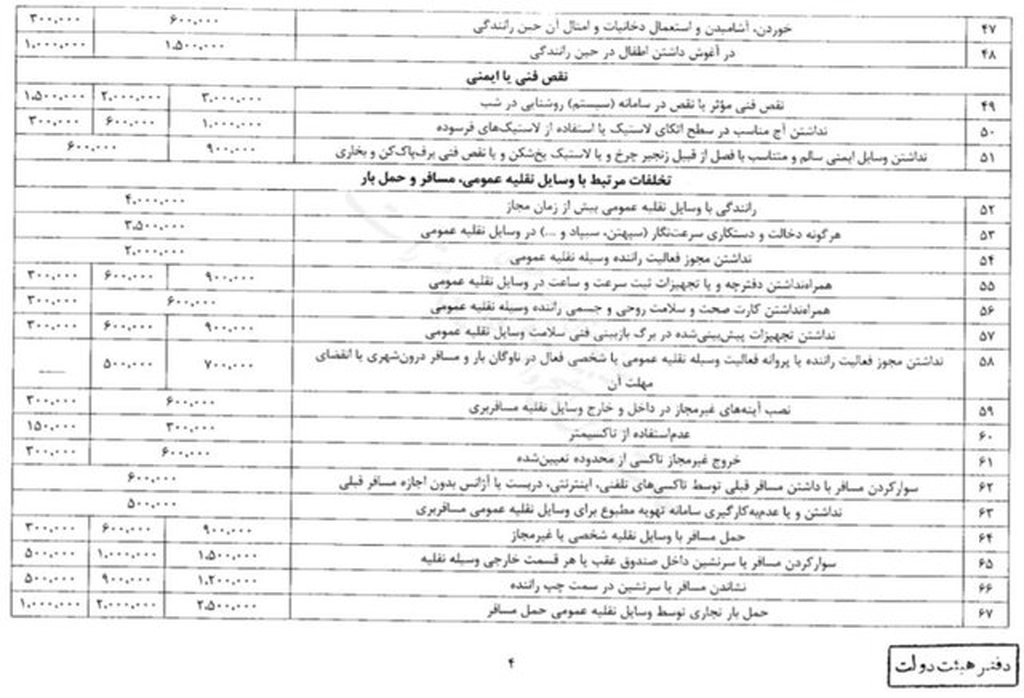 ۴۷ خوردن، آشامیدن و استعمال دخانیات و امثال آن حین رانندگی ۶۰۰,۰۰۰ ۳۰۰,۰۰۰
۴۸ در آغوش داشتن اطفال در حین رانندگی ۱,۵۰۰,۰۰۰ ۱,۰۰۰,۰۰۰
نقص فنی یا ایمنی
۴۹ نقص فنی مؤثر یا نقص در سامانه (سیستم) روشنایی در شب ۳,۰۰۰,۰۰۰ ۲,۰۰۰,۰۰۰ ۱,۵۰۰,۰۰۰
۵۰ نداشتن آج مناسب در سطح اتکای لاستیک یا استفاده از لاستیک‌های فرسوده ۱,۰۰۰,۰۰۰ ۶۰۰,۰۰۰ ۳۰۰,۰۰۰
۵۱ نداشتن وسایل ایمنی سالم و متناسب با فصل از قبیل زنجیر چرخ و یا لاستیک یخ‌شکن و یا نقص فنی برف‌پاک‌کن و بخاری ۹۰۰,۰۰۰ ۶۰۰,۰۰۰
تخلفات مرتبط با وسایل نقلیه عمومی، مسافر و حمل بار
۵۲ رانندگی با وسایل نقلیه عمومی بیش از زمان مجاز ۴,۰۰۰,۰۰۰
۵۳ هرگونه دخالت و دستکاری سرعت‌نگار (سپهتن، سیپاد و ...) در وسایل نقلیه عمومی ۳,۵۰۰,۰۰۰
۵۴ نداشتن مجوز فعالیت راننده وسیله نقلیه عمومی ۲,۰۰۰,۰۰۰
۵۵ همراه‌نداشتن دفترچه و یا تجهیزات ثبت سرعت و ساعت در وسایل نقلیه عمومی ۹۰۰,۰۰۰ ۶۰۰,۰۰۰ ۳۰۰,۰۰۰
۵۶ همراه‌نداشتن کارت صحت و سلامت روحی و جسمی راننده وسیله نقلیه عمومی ۶۰۰,۰۰۰ ۳۰۰,۰۰۰
۵۷ نداشتن تجهیزات پیش‌بینی‌شده در برگ بازبینی فنی سلامت وسایل نقلیه عمومی ۹۰۰,۰۰۰ ۶۰۰,۰۰۰ ۳۰۰,۰۰۰
۵۸ نداشتن مجوز فعالیت راننده یا پروانه فعالیت وسیله نقلیه عمومی یا شخصی فعال در ناوگان بار و مسافر درون‌شهری یا انقضای ۷۰۰,۰۰۰ ۵۰۰,۰۰۰ ——
مهلت آن
۵۹ نصب آینه‌های غیرمجاز در داخل و خارج وسایل نقلیه مسافربری ۶۰۰,۰۰۰ ۳۰۰,۰۰۰
۶۰ عدم‌استفاده از تاکسیمتر ۳۰۰,۰۰۰ ۱۵۰,۰۰۰
۶۱ خروج غیرمجاز تاکسی از محدوده تعیین‌شده ۶۰۰,۰۰۰ ۳۰۰,۰۰۰
۶۲ سوارکردن مسافر با داشتن مسافر قبلی توسط تاکسی‌های تلفنی، اینترنتی، دربست یا آژانس بدون اجازه مسافر قبلی ۶۰۰,۰۰۰
۶۳ نداشتن و یا عدم‌به‌کارگیری سامانه تهویه مطبوع برای وسایل نقلیه عمومی مسافربری ۵۰۰,۰۰۰
۶۴ حمل مسافر با وسایل نقلیه شخصی یا غیرمجاز ۹۰۰,۰۰۰ ۶۰۰,۰۰۰ ۳۰۰,۰۰۰
۶۵ سوارکردن مسافر یا سرنشین داخل صندوق عقب یا هر قسمت خارجی وسیله نقلیه ۱,۵۰۰,۰۰۰ ۱,۰۰۰,۰۰۰ ۵۰۰,۰۰۰
۶۶ نشاندن مسافر یا سرنشین در سمت چپ راننده ۱,۲۰۰,۰۰۰ ۹۰۰,۰۰۰ ۵۰۰,۰۰۰
۶۷ حمل بار تجاری توسط وسایل نقلیه عمومی حمل مسافر ۲,۵۰۰,۰۰۰ ۲,۰۰۰,۰۰۰ ۱,۰۰۰,۰۰۰
۴
دفتر هیئت دولت